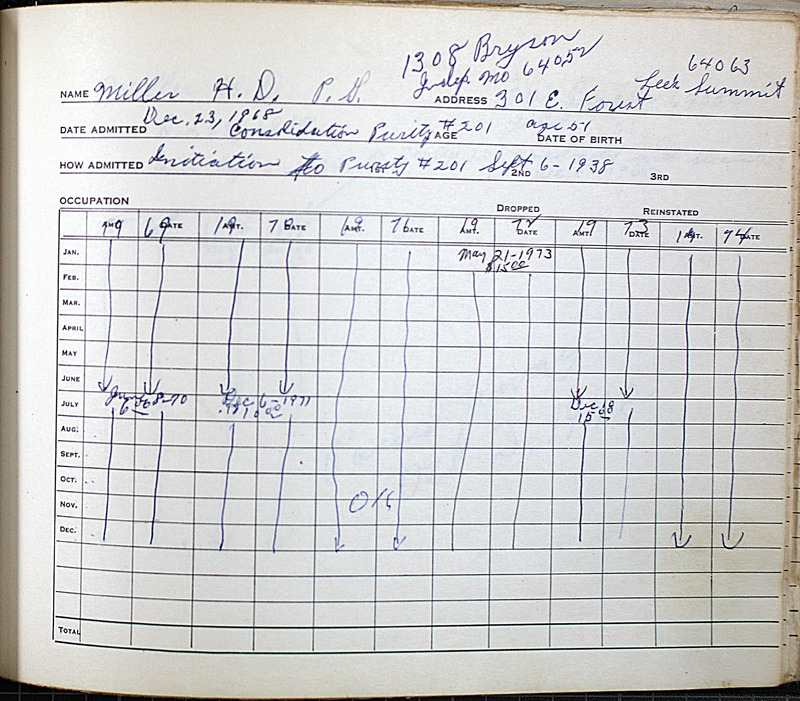 1308 Bryson
Indep. Mo 64052
64063
NAME Miller H. D. P. G. ADDRESS 301 E. Forest Lee's Summit
DATE ADMITTED Dec. 23, 1968 Consolidation Purity #201 AGE age 51 DATE OF BIRTH
HOW ADMITTED Initiation to Purity #201 Sept 6-1938 2ND 3RD
OCCUPATION DROPPED REINSTATED
19 69 19 70 19 76 19 72 19 73 19 74
AMT. DATE AMT. DATE AMT. DATE AMT. DATE AMT. DATE
JAN. May 21-1973
$15.00
FEB.
MAR.
APRIL
MAY
JUNE
JULY Dec 6-1971 Dec 18
15.00
AUG.
SEPT.
OCT.
NOV.
DEC.
TOTAL